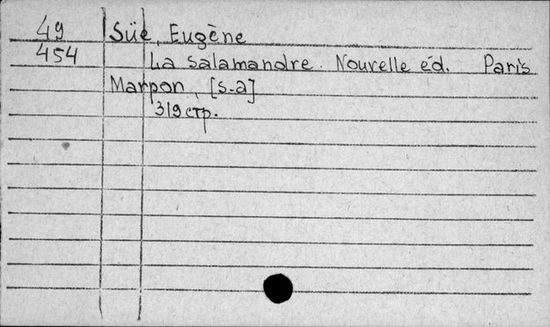 49 Süe, Eugène
454 La salamandre. Nouvelle éd. Paris
Marpon, [s-a]
319 стр.